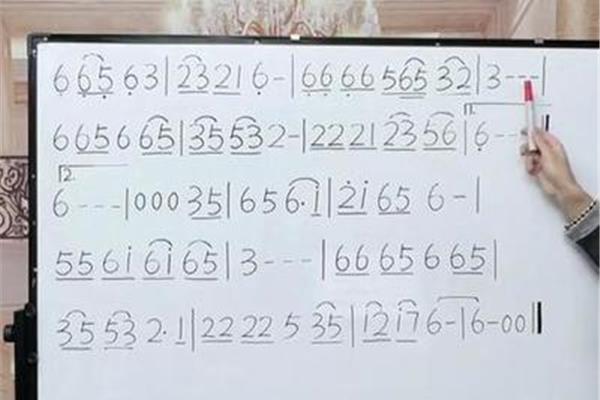 6 665 63 | 2321 6 - | 66 66 565 32 | 3 - - - |
6 65 6 65 | 35 53 2 - | 22 21 23 56 | 1. 6 - - -
2. 6 - - - | 0 0 0 35 | 6 5 6·i | 2i 65 6 - |
55 6i 6i 65 | 3 - - - | 66 65 6 65 |
35 53 2· 1 | 22 22 5 35 | 12 17 6 - | 6 - 0 0 ‖